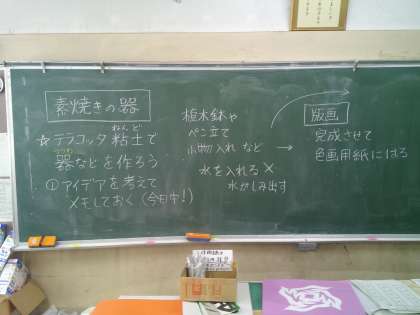 素焼きの器
☆テラコッタ粘土で
ねんど
器などを作ろう
うつわ
①アイデアを考えて
メモしておく(今日中!)
植木鉢や
ペン立て
小物入れ など
水を入れる×
水がしみ出す
→
版画
完成させて
色画用紙にはる